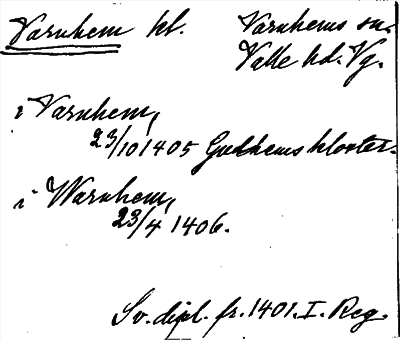 Varnhem kl. Varnhems sn.
Valle hd. Vg.
i Varnhem,
23/10 1405 Gudhems kloster.
i Warnhem,
23/4 1406.
Sv. dipl. fr. 1401. I. Reg.